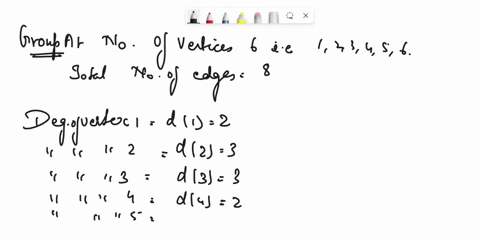 Group A: No. of Vertices 6 i.e 1, 2, 3, 4, 5, 6.
Total No. of edges = 8
Deg. of vertex 1 = d(1) = 2
" " " 2 = d(2) = 3
" " " 3 = d(3) = 3
" " " 4 = d(4) = 2
" " " 5 =